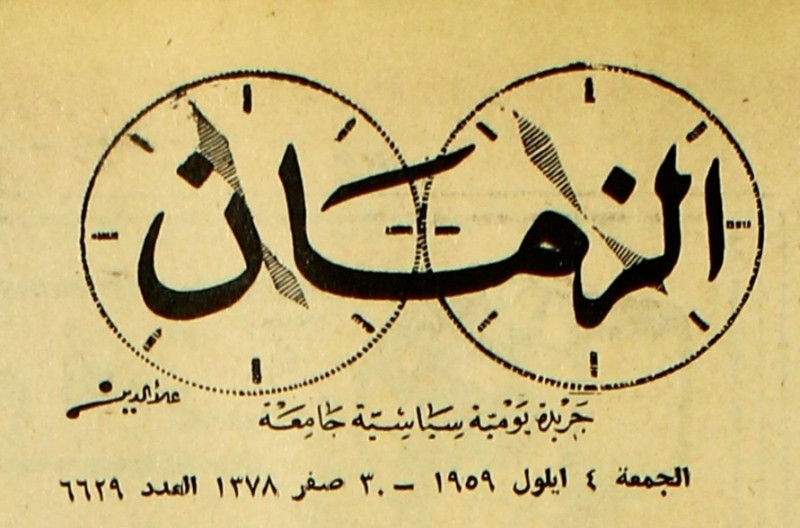 الزمان
جريدة يومية سياسية جامعة
علاء الدين
الجمعة ٤ ايلول ١٩٥٩ – ٣٠ صفر ١٣٧٨ العدد ٦٦٢٩